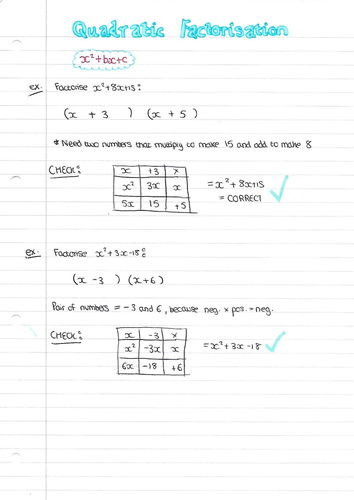 Quadratic Factorisation
x²+bx+c
ex. Factorise x²+8x+15:
(x + 3 ) (x + 5 )
* Need two numbers that multiply to make 15 and add to make 8
CHECK:
x +3 ×
x² 3x x
5x 15 +5
= x² + 8x+15
= CORRECT
ex. Factorise x²+3x-18:
(x - 3 ) (x+6)
Pair of numbers = -3 and 6, because neg. × pos. = neg.
CHECK:
x -3 ×
x² -3x x
6x -18 +6
= x² + 3x -18